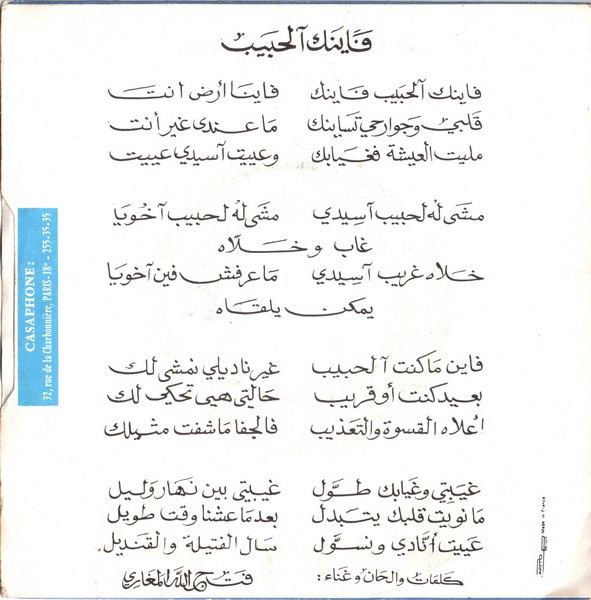 فاينك آلحبيب
فاينك آلحبيب فاينك فاينا أرض انت
قلبي وجوارحي تساينك ما عندى غير أنت
مليت العيشة فغيابك وعييت آسيدي عييت
مشى له لحبيب آسيدي مشى له لحبيب آخويا
غاب وخلاه
خلاه غريب آسيدي ما عرفش فين آخويا
يمكن يلقاه
فاين ما كنت آلحبيب غير ناديلي نمشى لك
بعيد كنت أو قريب حالتي هيى تحكي لك
اعلاه القسوة والتعذيب فالجفا ما شفت مثيلك
غيبتي وغيابك طول غيبتي بين نهار وليل
ما نويت قلبك يتبدل بعد ما عشنا وقت طويل
عييت أنادي ونسول سال الفتيلة والقنديل.
كلمات والحان وغناء: فتح الله المغاري
CASAPHONE :
32, rue de la Charbonnière, PARIS-18e - 255-35-35
Made in France